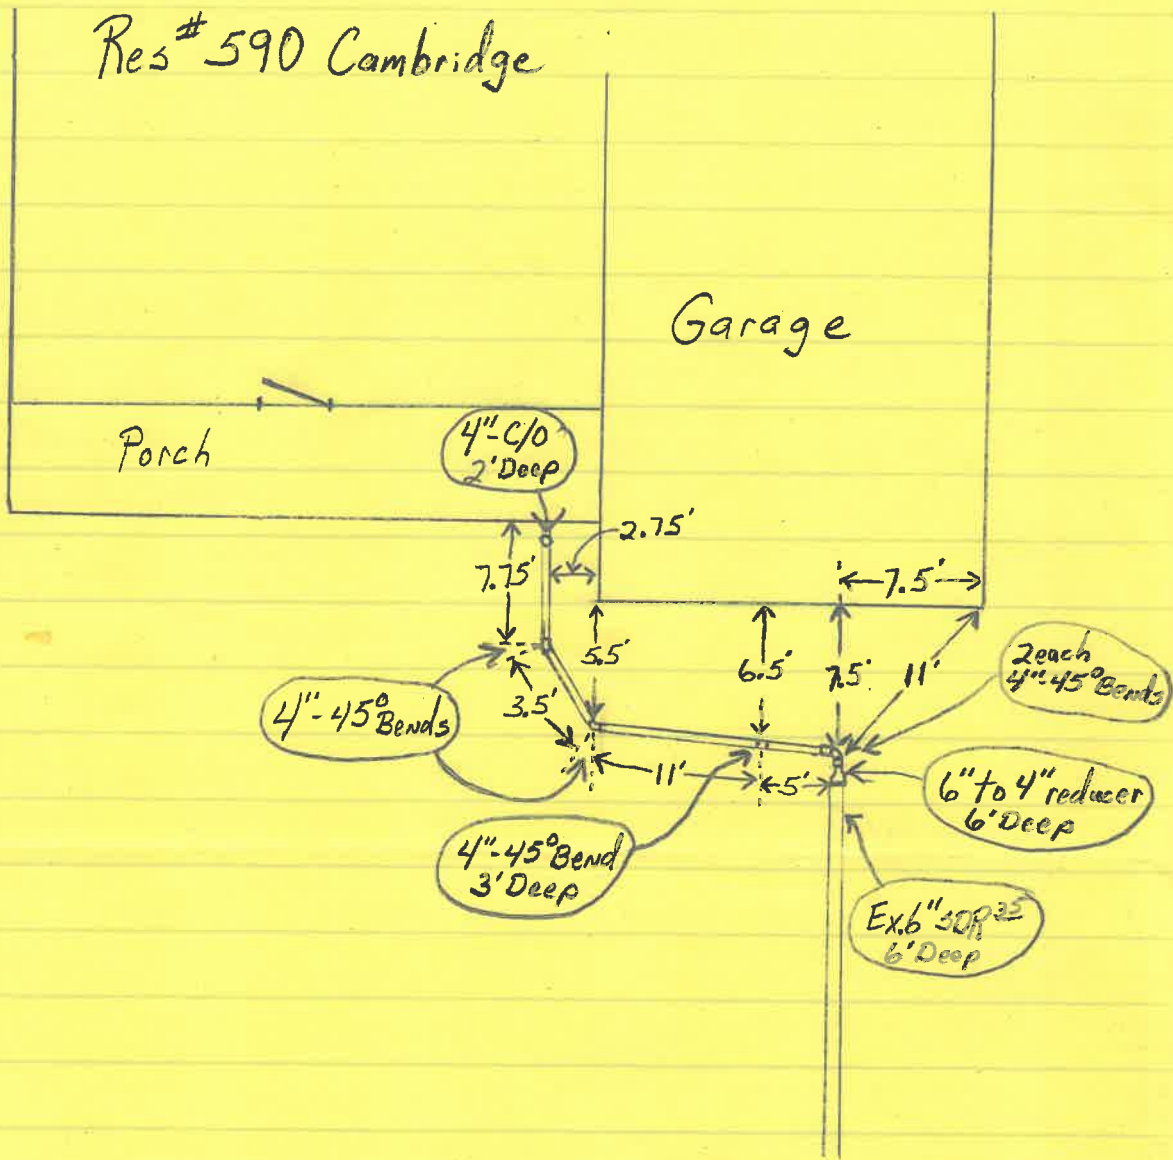 Res # 590 Cambridge
Garage
Porch
4"-C/O
2' Deep
2.75'
7.75'
7.5'
5.5'
6.5'
7.5'
11'
2 each
4"-45° Bends
3.5'
4"-45° Bends
11'
5'
6" to 4" reducer
6' Deep
4"-45° Bend
3' Deep
Ex. 6" SDR 35
6' Deep